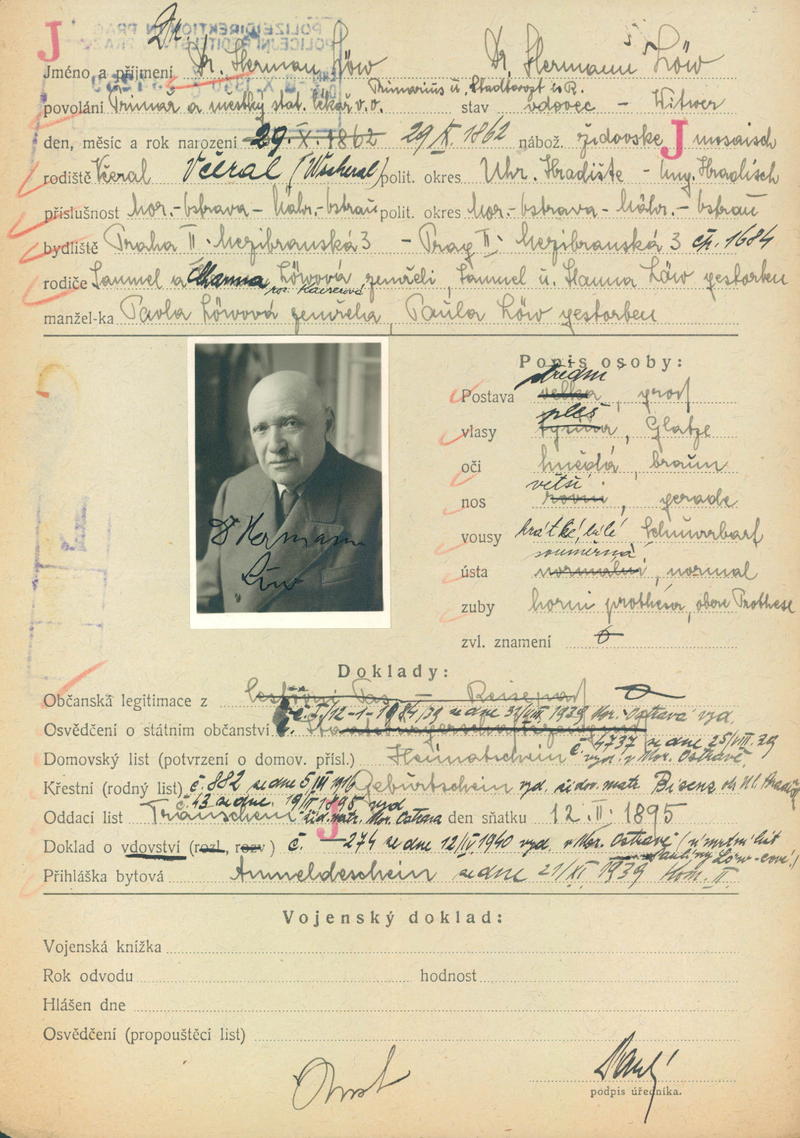 J
Dr.
POLIZEIDIREKTION IN PRAG
POLICEJNÍ ŘEDITELSTVÍ V PRAZE
Jméno a příjmení Dr. Herman Löw Dr. Hermann Löw
Primarius u. Stadtarzt i. R.
povolání Primář a městký stat. lékař v.v. stav vdovec - Witwer
den, měsíc a rok narození 29. X. 1862 29/X. 1862 nábož. židovske J mosaisch
rodiště Včeral Včeral (Wscheral) polit. okres Uhr. Hradiště - Ung. Hradisch
příslušnost Mor.-Ostrava - Mähr.-Ostrau polit. okres Mor.-Ostrava - Mähr.-Ostrau
bydliště Praha II. Mezibranská 3 - Prag II. Mezibranská 3 čp. 1684
rodiče Samuel a Hanna Löwová zemřeli, Samuel u. Hanna Löw gestorben
roz. Kaiserová
manžel-ka Pavla Löwová zemřela, Paula Löw gestorben
Popis osoby:
střední
Postava velká, groß
pleš
vlasy, Glatze
oči hnědá, braun
větší
nos rovný, gerade
vousy krátké, bílé, Schnurrbart
souměrná
ústa normalní, normal
zuby horní prothésa, obere Prothese
zvl. znamení
Dr Hermann
Löw
Doklady:
Občanská legitimace z Cestovní Pas - Reisepass
č. 12-1-1984/39 ze dne 31/VIII. 1939 Mor. Ostrava vyd.
Osvědčení o státním občanství Staatsbürgerschaftszeugnis
č. 4737 ze dne 25/VIII. 39
Domovský list (potvrzení o domov. přísl.) Heimatschein vyd. v Mor. Ostravě
Křestní (rodný list) č. 882 ze dne 5/III 1916 Geburtschein vyd. židov. matr. Bisenz
č. 43 ze dne 19/II 1895 vyd.
Oddací list Trauschein žid. matr. Mor. Ostrava den sňatku 12. II. 1895
J
Doklad o vdovství (rozl., rozv) č. 274 ze dne 12/IV. 1940 vyd. v Mor. Ostravě (úmrtní list
Pavliny Löw-ové)
Přihláška bytová Anmeldeschein ze dne 21/XI. 1939 Kom. II
Vojenský doklad:
Vojenská knížka
Rok odvodu hodnost
Hlášen dne
Osvědčení (propouštěcí list)
podpis úředníka.